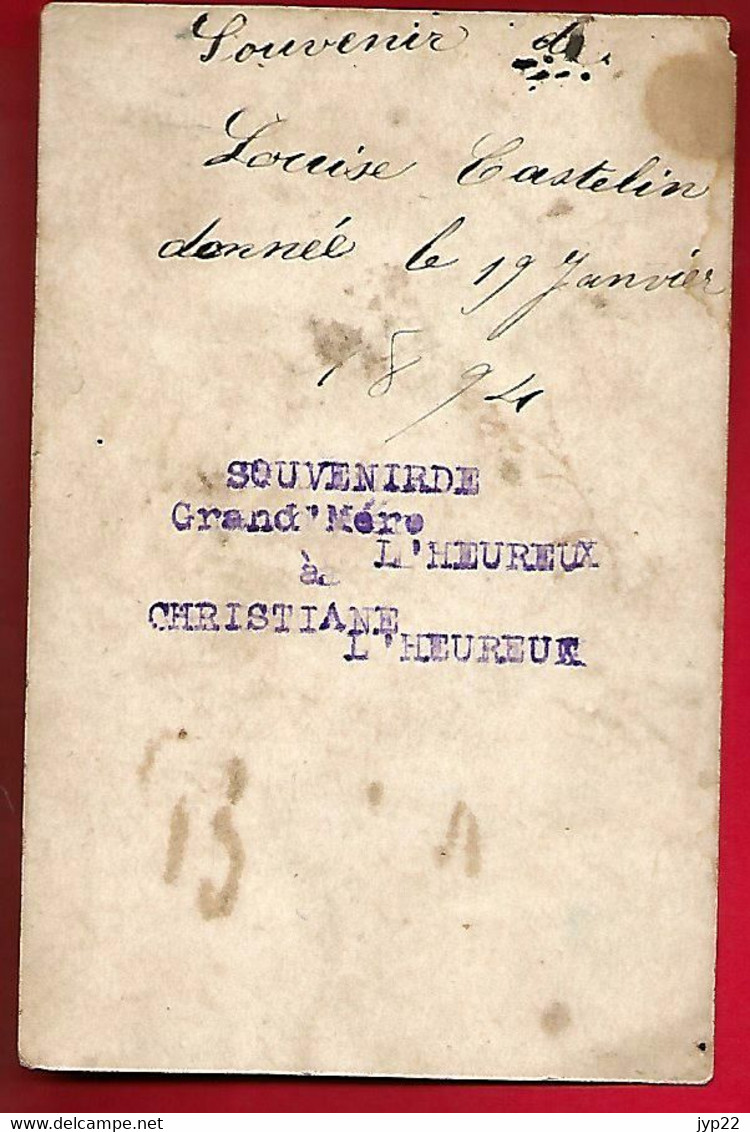 Souvenir de
Louise Castelin
donnée le 19 Janvier
1894
SOUVENIRDE
Grand'Mére
L'HEUREUX
à
CHRISTIANE
L'HEUREUX
www.delcampe.net
jyp22